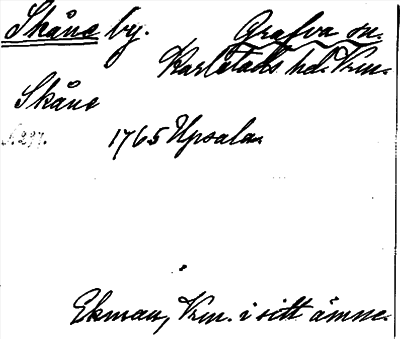 Skåne by. Grafva sn.
Karlstads hd. Vrm.
Skåne
1765 Upsala
Ekman, Vrm. i sitt ämne.